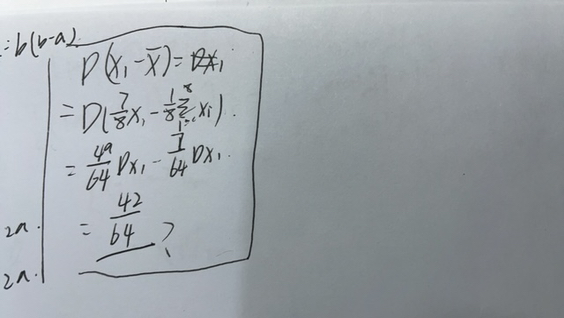 = b(b-a)
D(X₁ - X̄) = DX₁
= D(7/8 X₁ - 1/8 Σ⁸ᵢ₌₂ Xᵢ).
= 49/64 DX₁ - 7/64 DX₁.
= 42/64 ?
2a.
2a.